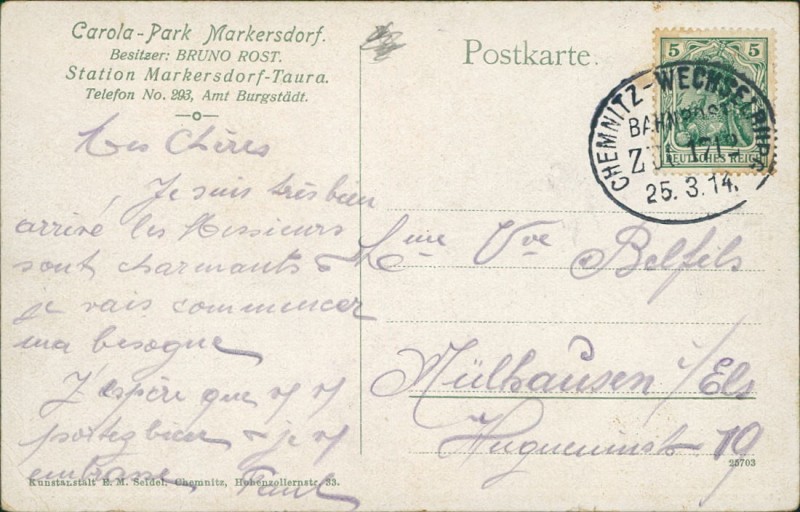 Carola-Park Markersdorf.
Besitzer: BRUNO ROST.
Station Markersdorf-Taura.
Telefon No. 293, Amt Burgstädt.
Mes Chères
Je suis très bien
arrivé les Messieurs
sont charmants &
je vais commencer
ma besogne
J'espère que vs vs
portez bien & je vs
embrasse Paul
Kunstanstalt E. M. Seidel, Chemnitz, Hohenzollernstr. 33.
Postkarte.
5 5
DEUTSCHES REICH
CHEMNITZ-WECHSELBURG
BAHNPOST
25.3.14.
Mme Vve Belfils
Mülhausen i/Els
Hugueninstr 19
25703